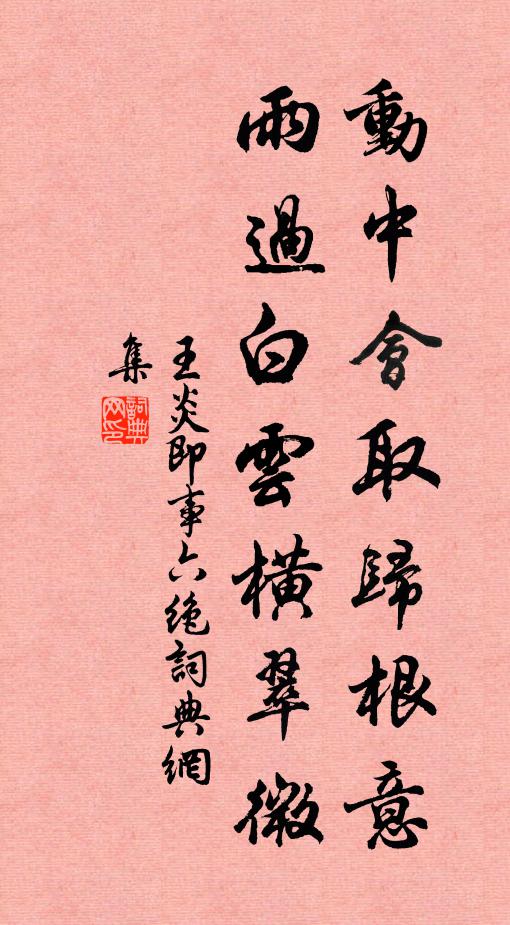 動中會取歸根意
雨過白雲橫翠微
王炎即事六絶詞典網
集
詞典
网印